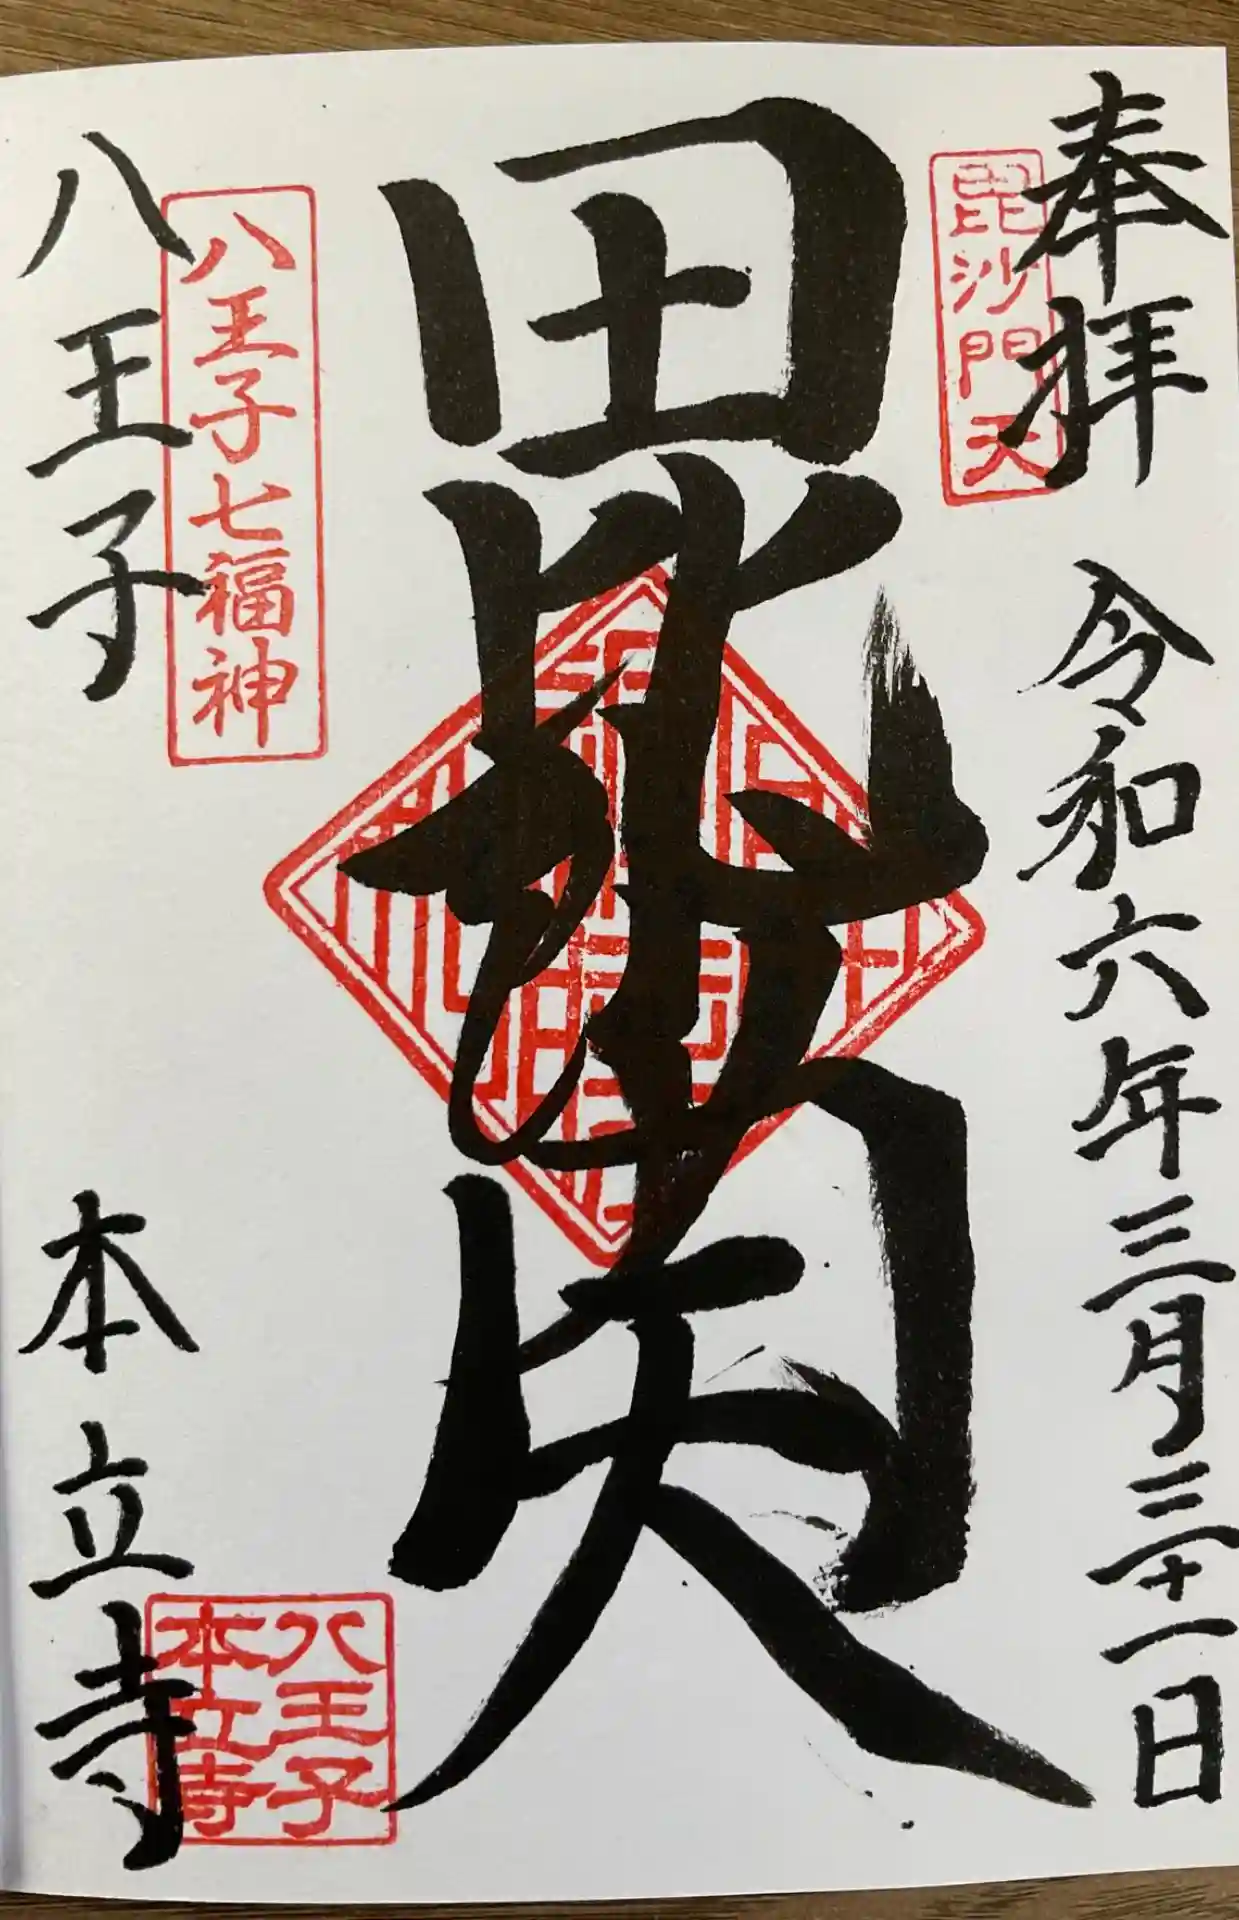 奉拝
令和六年三月三十一日
毘沙門天
毘沙門天
八王子七福神
八王子
本立寺
八王子
本立寺